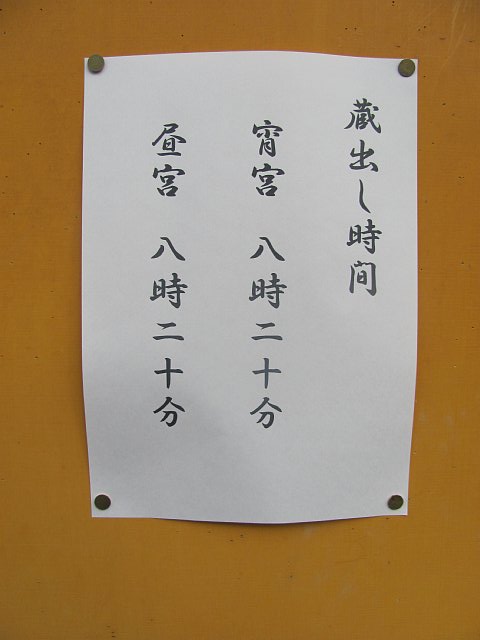 蔵出し時間
宵宮 八時二十分
昼宮 八時二十分